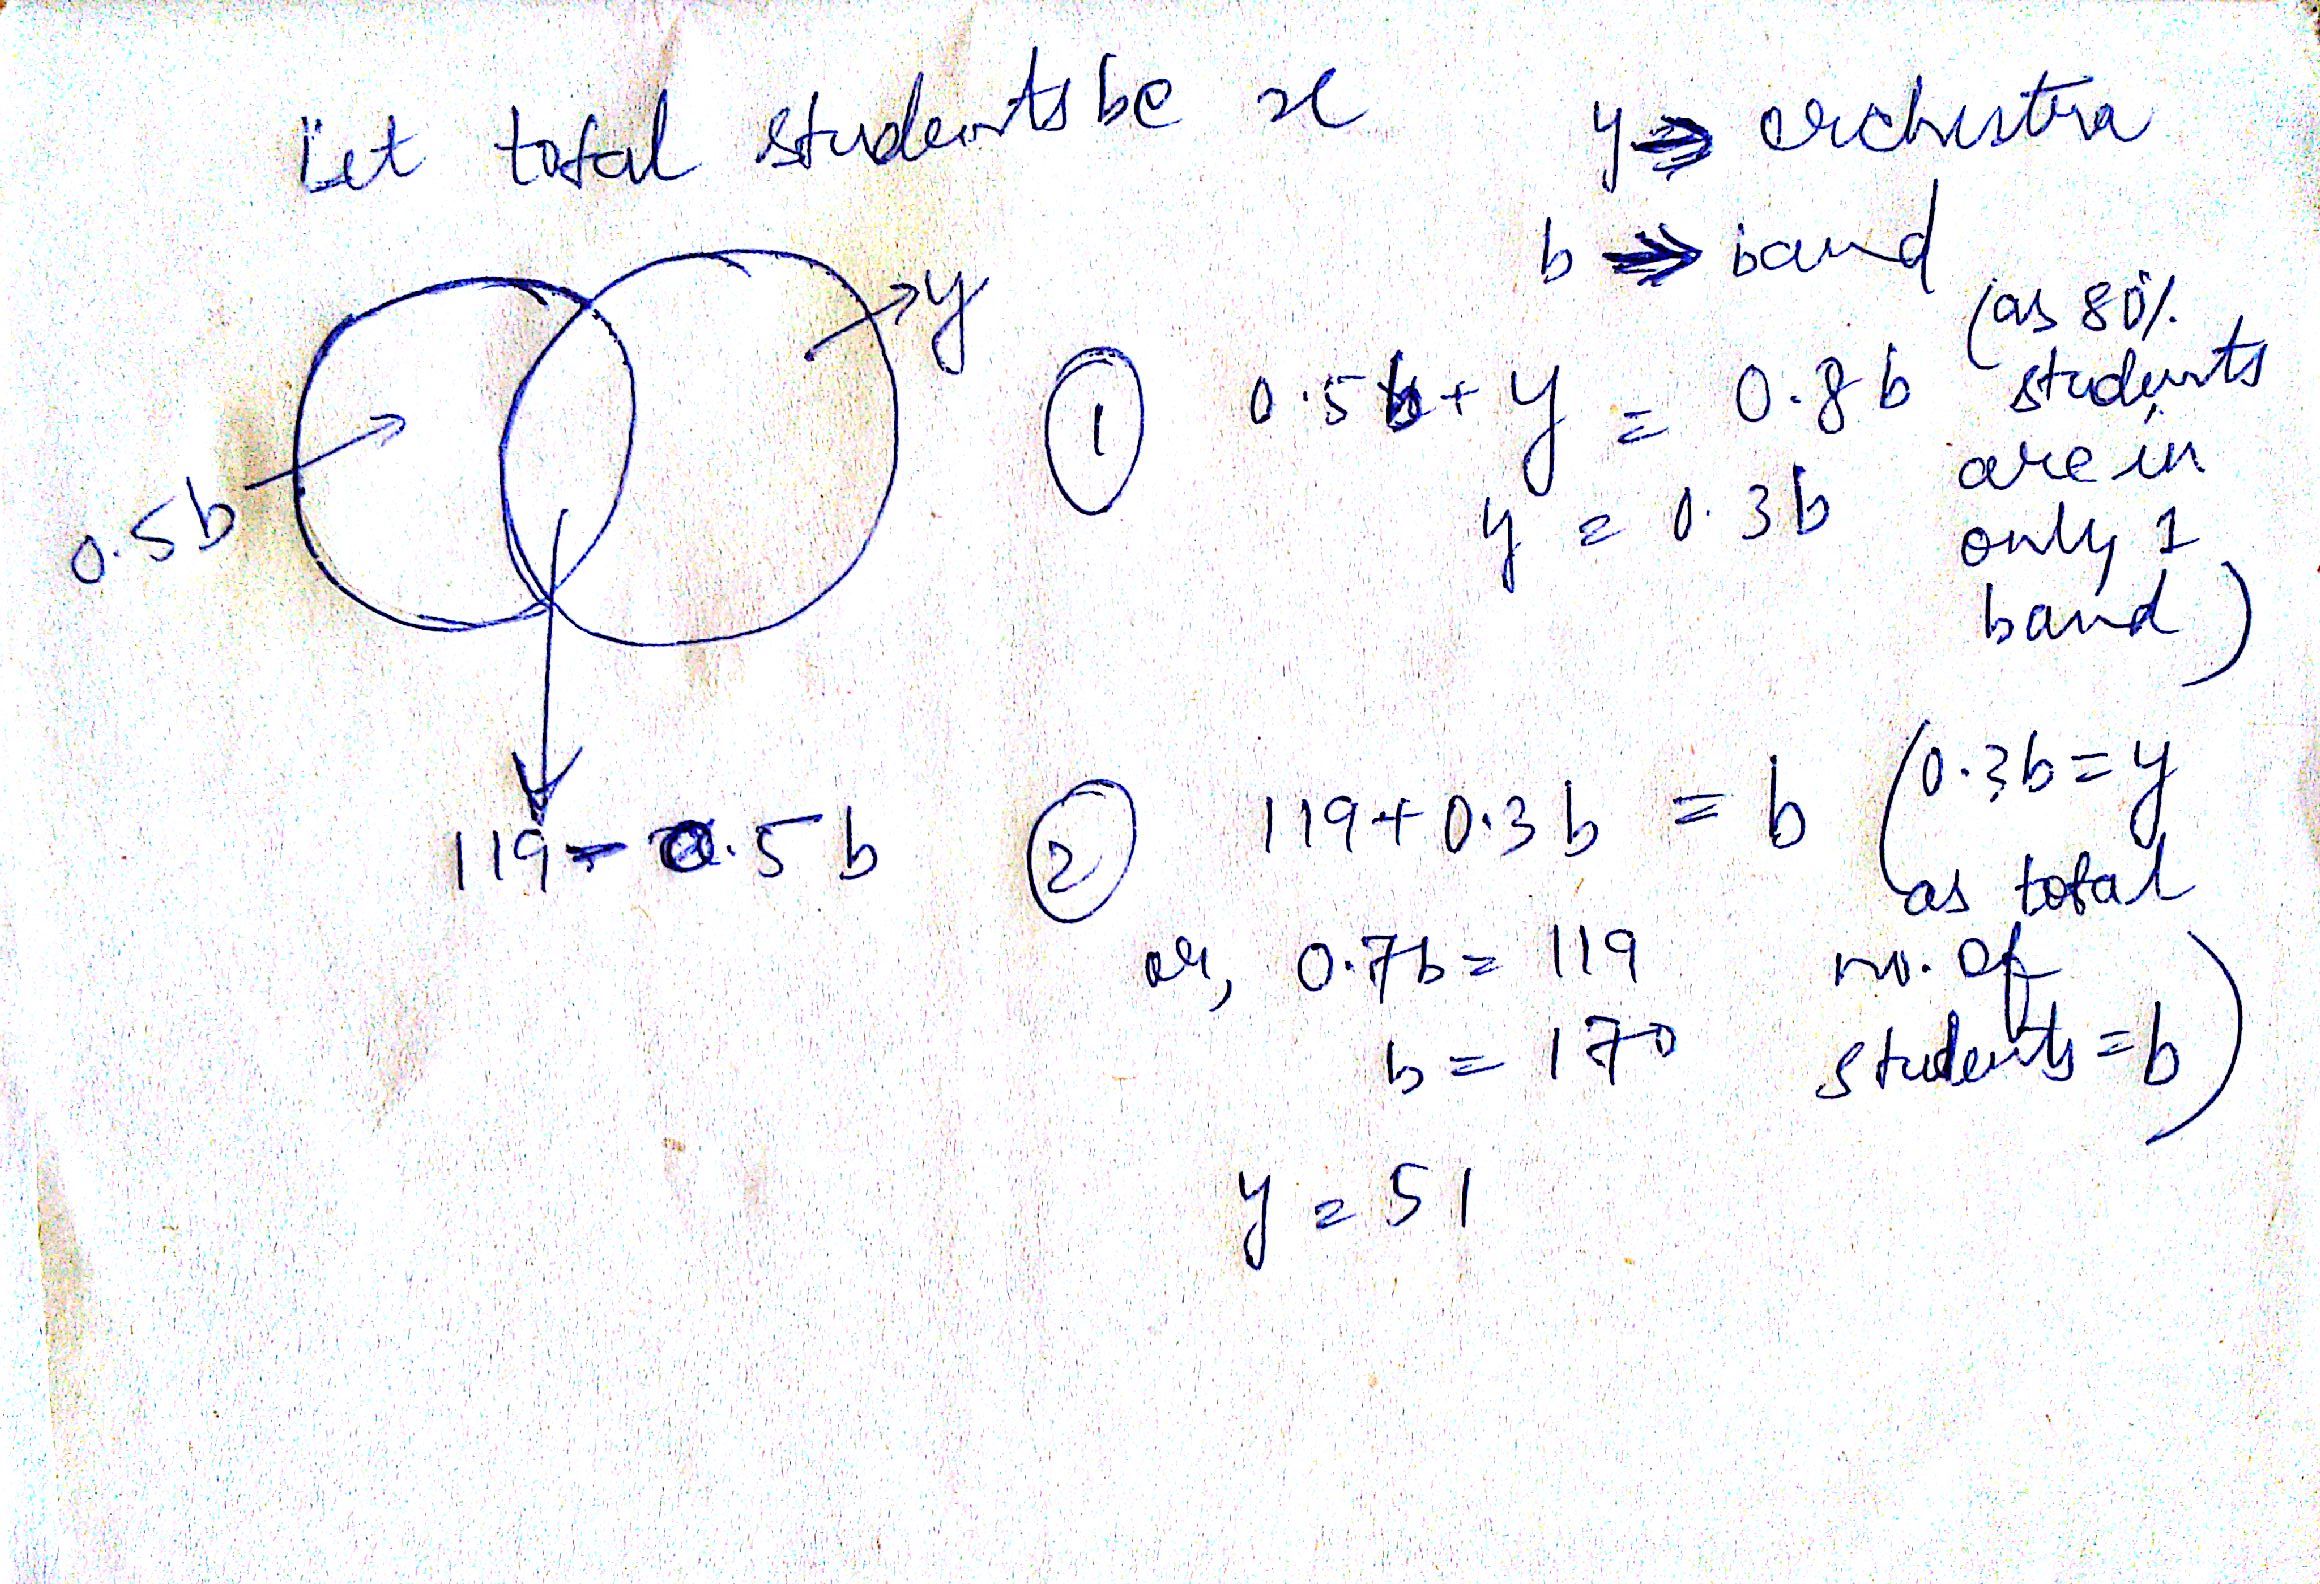 Let total students be x
y ⇒ orchestra
b ⇒ band
y
0.5b
119 - 0.5b
① 0.5b + y = 0.8b (as 80% students are in only 1 band)
y = 0.3b
② 119 + 0.3b = b (0.3b = y as total no. of students = b)
or, 0.7b = 119
b = 170
y = 51